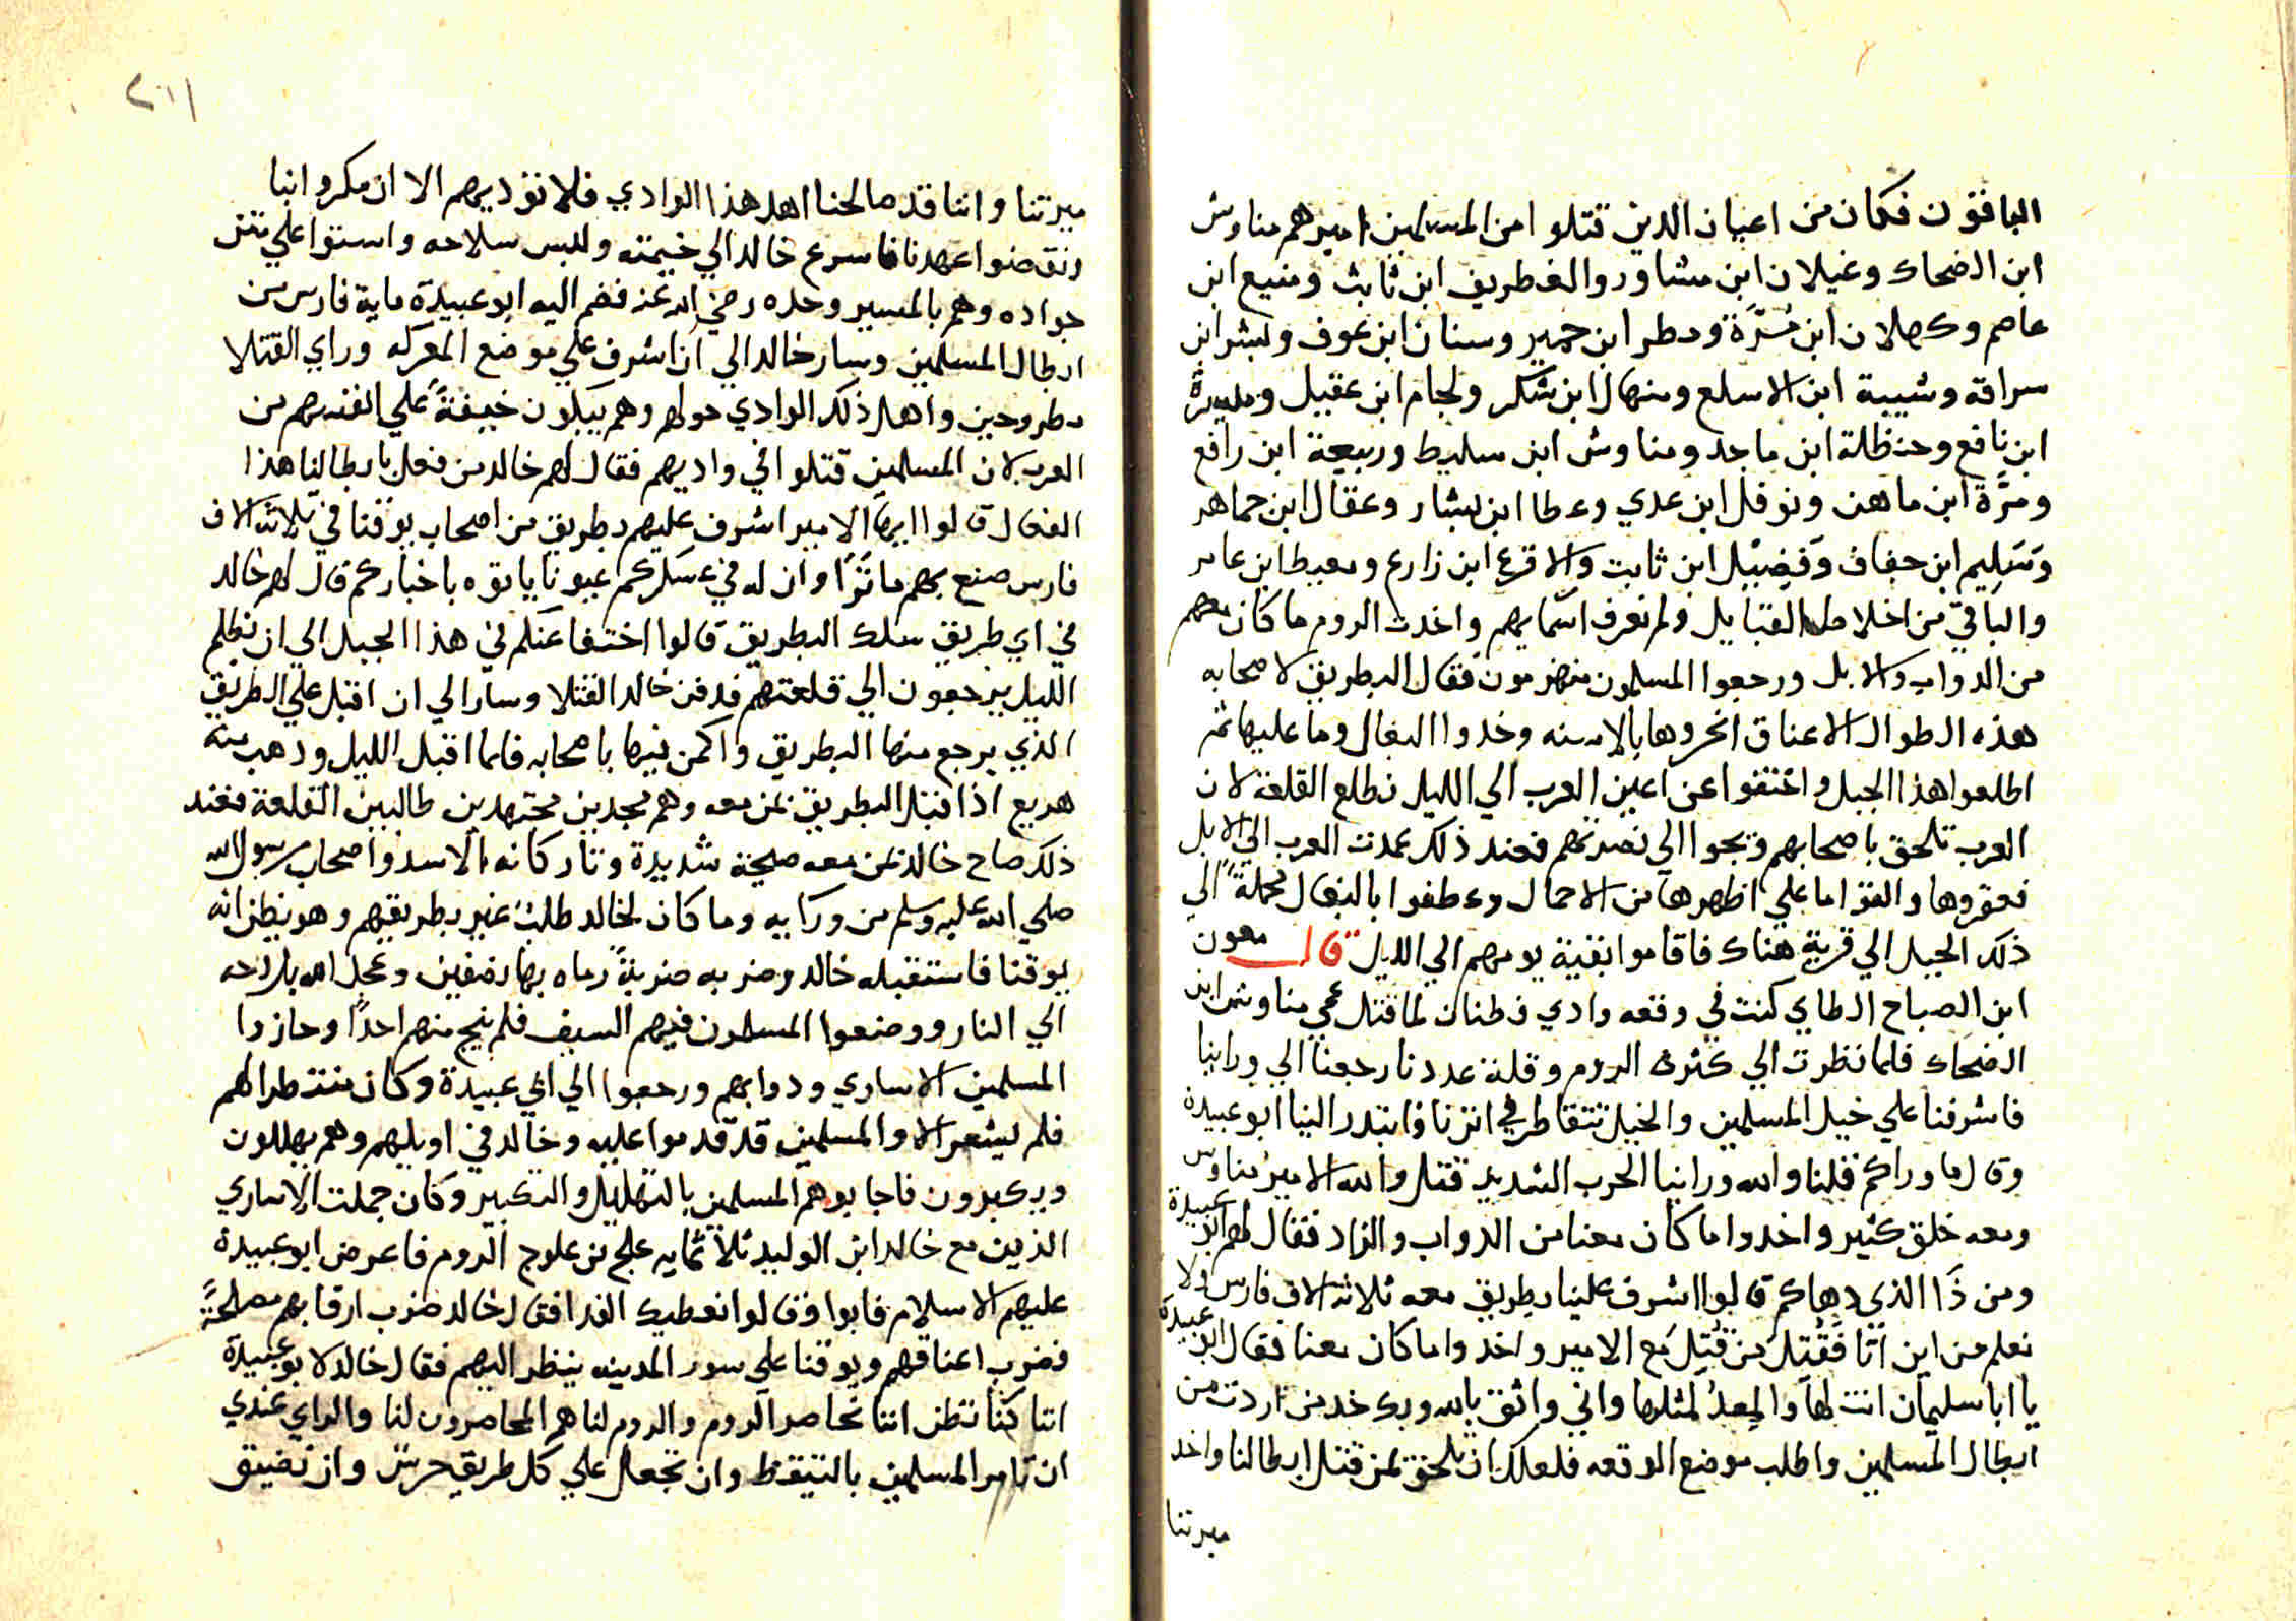 الباقون فكان من اعيان الدين قتلوا من المسلمين اميرهم مناوش
ابن الضحاك وغيلان ابن مشاور والغطريف ابن ثابث ومنيع ابن
عاصم وكهلان ابن مُرَّة ومطر ابن حمير وسنان ابن عوف وبشر ابن
سراقة وشيبة ابن الاسلع ومنهال ابن شكر ولجام ابن عقيل وميسرة
ابن نافع وحنظلة ابن ماجد ومناوش ابن سليط وربيعة ابن رافع
ومرَّة ابن ماهن ونوفل ابن عدي وعطا ابن بشار وعقال ابن جماهر
وسَلِيم ابن خفاف وَفضيل ابن ثابت والاقرع ابن زارع ومعيط ابن عامر
والباقي من اخلاط القبايل ولم نعرف اسمايهم واخدت الروم ما كان معهم
من الدواب والابل ورجعوا المسلمون منهزمون فقال البطريق لاصحابه
هذه الطوال الاعناق انحروها بالاسنه وخدوا البغال وما عليها ثم
اطلعوا هذا الجبل واختفوا عن اعين العرب الي الليل نطلع القلعة لان
العرب تلحق باصحابهم وينجوا الي نصرتهم فعند ذلك عمدت العرب الي الابل
فعقروها والقوا ما علي اظهرها من الاحمال وعطفوا بالبغال محملةً الي
ذلك الجبل الي قرية هناك فاقاموا بقية يومهم الي الليل قال معون
ابن الصباح الطاي كنت في وقعه وادي فطنان لما قتل عمي مناوش ابن
الضحاك فلما نظرت الي كثرت الروم وقلة عددنا رجعنا الي وراينا
فاشرفنا علي خيل المسلمين والخيل تتقاطر في اثرنا فابتدر الينا ابو عبيدة
وقال ما وراكم قلنا والله وراينا الحرب الشديد قتل والله الامير مناوش
ومعه خلق كثير واخدوا ما كان معنا من الدواب والزاد فقال لهم ابو عبيدة
ومن ذَا الذي دهاكم قالوا اشرف علينا بطريق معه ثلاثه الاف فارس ولا
نعلم من اين اتا فَقُتِل من قُتِل مَع الامير واخدوا ما كان معنا فقال ابو عبيدة
يا ابا سليمان انت لها والمعدُ لمثلها واني واثق بالله وبك خد من اردت من
ابطال المسلمين واطلب موضع الوقعه فلعلك ان تلحق بمن قتل ابطالنا واخد
ميرتنا
٢٠١
ميرتنا واننا قد صالحنا اهل هذا الوادي فلا نوديهم الا ان مكروا بنا
ونقضوا عهدنا فاسرع خالد الي خيمته ولبس سلاحه واستوا علي متن
جواده وهم بالمسير وحده رضي الله عنه فضم اليه ابو عبيدة ماية فارس من
ابطال المسلمين وسار خالد الي ان اشرف علي موضع المعركه وراي القتلا
مطروحين واهل ذلك الوادي حولهم وهم يبكون خيفةً علي انفسهم من
العرب لان المسلمين قتلوا في واديهم فقال لهم خالد من فعل بابطالنا هذا
الفعال قالوا ايها الامير اشرف عليهم بطريق من اصحاب يوقنا في ثلاثه الاف
فارس صنع بهم ما تَرَا وان له في عسكركم عيونا ياتوه باخباركم قال لهم خالد
في اي طريق سلك البطريق قالوا اختفا عنكم في هذا الجبل الي ان يظلم
الليل يرجعون الي قلعتهم فدفن خالد القتلا وسار الي ان اقبل علي الطريق
الذي يرجع منها البطريق واكمن فيها باصحابه فلما اقبل الليل ودهب منه
هزيع اذا قبل البطريق بمن معه وهم مجدين مجتهدين طالبين القلعة فعند
ذلك صاح خالد بمن معه صيحة شديدة وثار كانه الاسد واصحاب رسول الله
صلي الله عليه وسلم من ورايه وما كان لخالد طلبٌ غير بطريقهم وهو يظن انه
يوقنا فاستقبله خالد وضربه ضربةً رماه بها نصفين وعجل الله بلروحه
الي النار ووضعوا المسلمون فيهم السيف فلم ينج منهم احدًا وحازوا
المسلمين الاساري ودوابهم ورجعوا الي ابي عبيدة وكان منتظرا لهم
فلم يشعر الا والمسلمين قد قدموا عليه وخالد في اويلهم وهم يهللون
ويكبرون فاجابوهم المسلمين بالتهليل والتكبير وكان جملت الاساري
الذين مع خالد ابن الوليد ثلاثمايه علج من علوج الروم فاعرض ابو عبيدة
عليهم الاسلام فابوا وقالوا نعطيك الفدا فقال خالد ضرب ارقابهم مصلحةً
فضرب اعناقهم ويوقنا علي سور المدينه ينظر اليهم فقال خالد لابو عبيدة
اننا كنا نظن اننا نحاصر الروم والروم لنا هم المحاصرون لنا والراي عندي
ان تامر المسلمين بالتيقظ وان تجعل علي كل طريق حرس وان نضيق